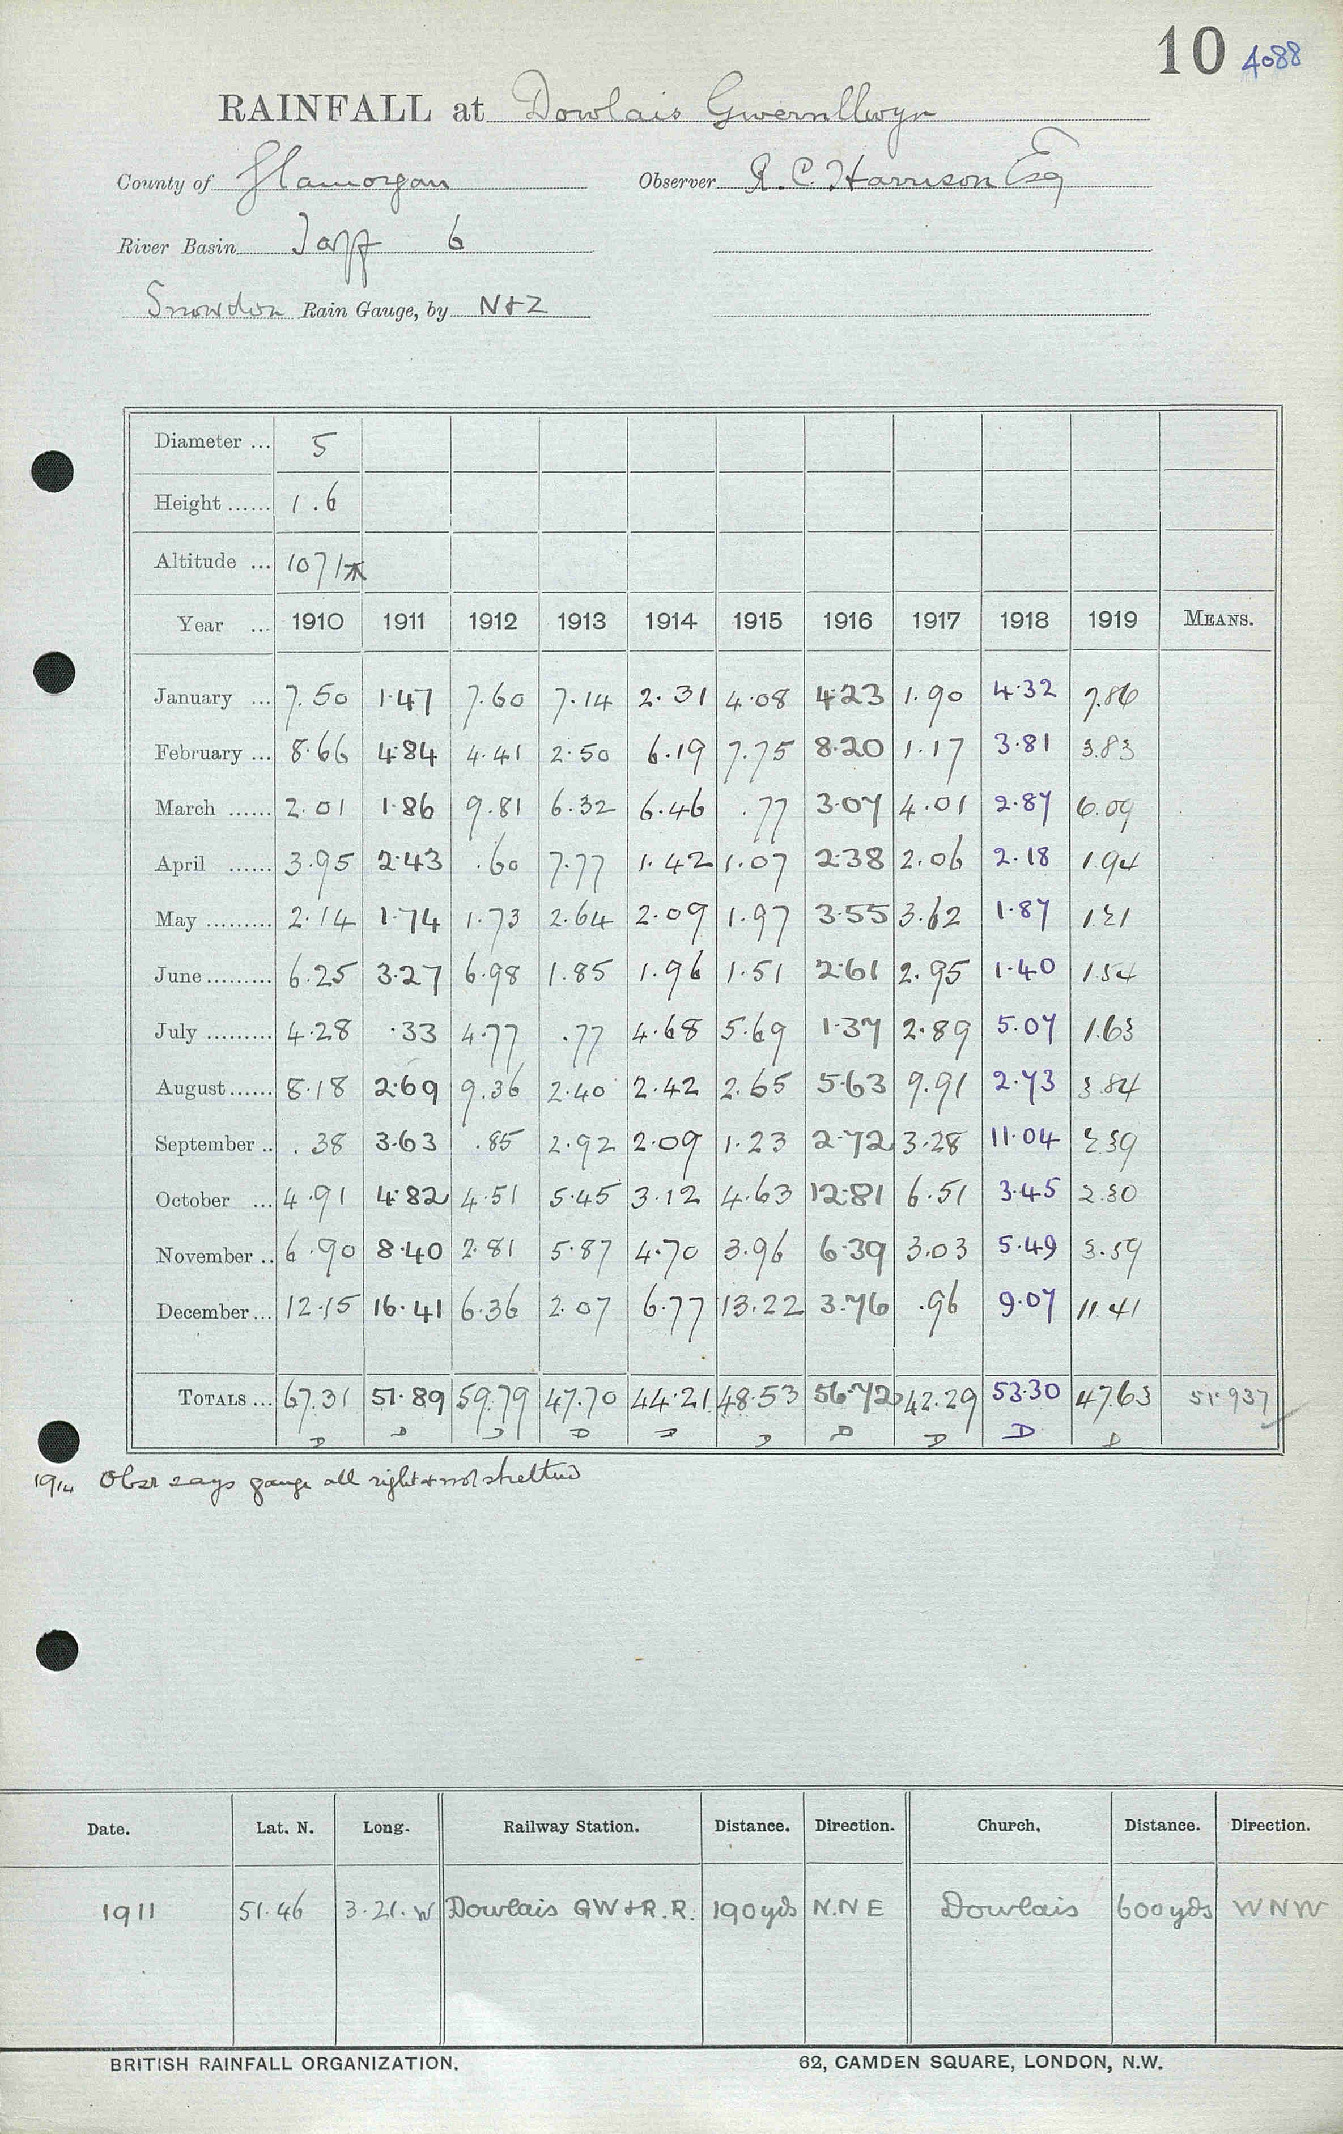 10 4088
RAINFALL at Dowlais Gwernllwyn
County of Glamorgan Observer R. C. Harrison Esq
River Basin Taff 6
Snowdon Rain Gauge, by N+Z
Diameter ... 5
Height ...... 1.6
Altitude ... 1071
Year ... 1910 1911 1912 1913 1914 1915 1916 1917 1918 1919 MEANS.
January ... 7.50 1.47 7.60 7.14 2.31 4.08 4.23 1.90 4.32 7.86
February ... 8.66 4.84 4.41 2.50 6.19 7.75 8.20 1.17 3.81 3.83
March ...... 2.01 1.86 9.81 6.32 6.46 .77 3.07 4.01 2.87 6.09
April ...... 3.95 2.43 .60 7.77 1.42 1.07 2.38 2.06 2.18 1.94
May ......... 2.14 1.74 1.73 2.64 2.09 1.97 3.55 3.62 1.87 1.21
June ......... 6.25 3.27 6.98 1.85 1.96 1.51 2.61 2.95 1.40 1.54
July ......... 4.28 .33 4.77 .77 4.68 5.69 1.37 2.89 5.07 1.63
August ...... 8.18 2.69 9.36 2.40 2.42 2.65 5.63 9.91 2.73 3.84
September .. .38 3.63 .85 2.92 2.09 1.23 2.72 3.28 11.04 2.39
October ... 4.91 4.82 4.51 5.45 3.12 4.63 12.81 6.51 3.45 2.30
November .. 6.90 8.40 2.81 5.87 4.70 3.96 6.39 3.03 5.49 3.59
December ... 12.15 16.41 6.36 2.07 6.77 13.22 3.76 .96 9.07 11.41
TOTALS ... 67.31 51.89 59.79 47.70 44.21 48.53 56.72 42.29 53.30 47.63 51.937
D D D D D D D D D D
1914 Obsr says gauge all right & not sheltered
Date. Lat. N. Long. Railway Station. Distance. Direction. Church. Distance. Direction.
1911 51.46 3.21.W Dowlais GW+R.R. 190yds N.N E Dowlais 600yds W N W
BRITISH RAINFALL ORGANIZATION. 62, CAMDEN SQUARE, LONDON, N.W.